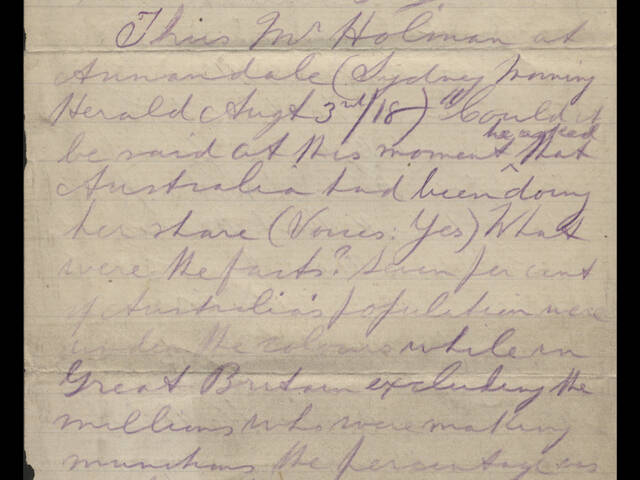 Thus Mr Holman at
Annandale (Sydney Morning
Herald Augt 3rd/18) "Could it
he asked
be said at this moment ^ that
Australia had been doing
her share (Voices: Yes) What
were the facts? Seven per cent
of Australia's population were
under the colours while in
Great Britain excluding the
millions who were making
munitions the percentage was